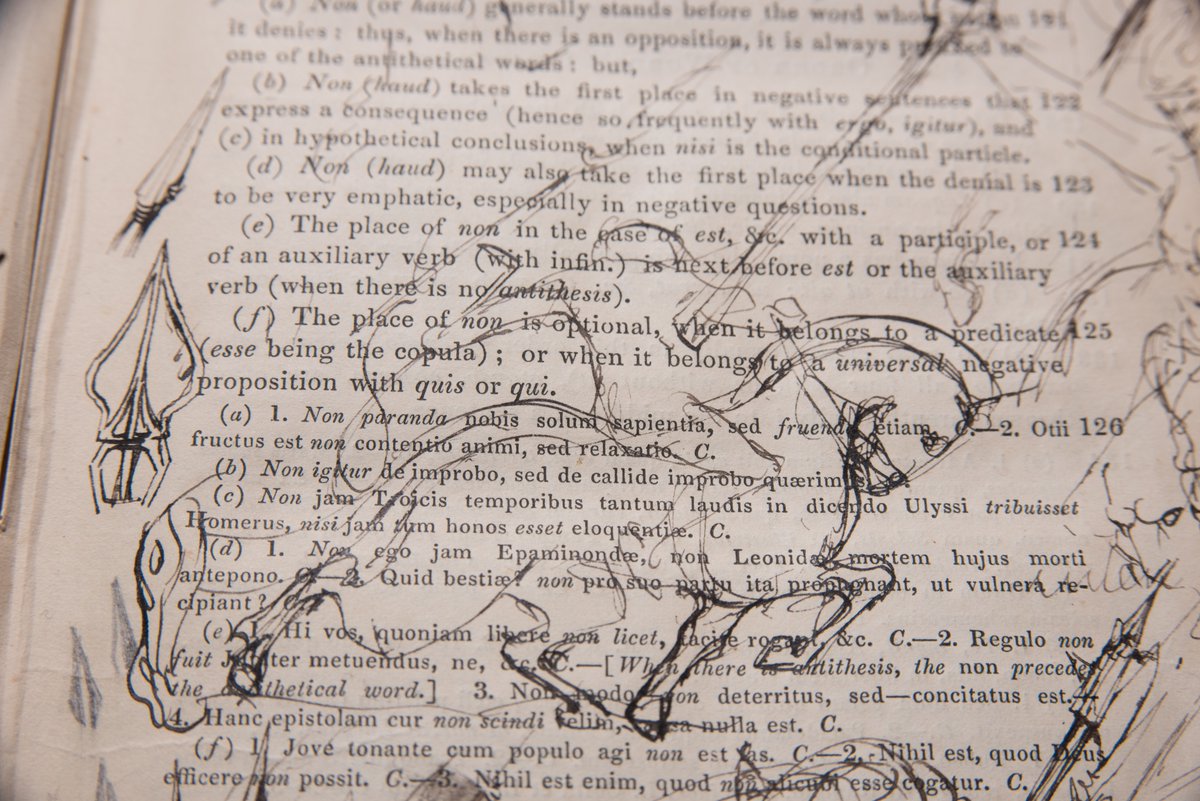 (a) Non (or haud) generally stands before the word whose 121
it denies: thus, when there is an opposition, it is always prefixed to
one of the antithetical words: but,
(b) Non (haud) takes the first place in negative sentences that 122
express a consequence (hence so frequently with ergo, igitur), and
(c) in hypothetical conclusions, when nisi is the conditional particle.
(d) Non (haud) may also take the first place when the denial is 123
to be very emphatic, especially in negative questions.
(e) The place of non in the case of est, &c. with a participle, or 124
of an auxiliary verb (with infin.) is next before est or the auxiliary
verb (when there is no antithesis).
(f) The place of non is optional, when it belongs to a predicate 125
(esse being the copula); or when it belongs to a universal negative
proposition with quis or qui.
(a) 1. Non paranda nobis solum sapientia, sed fruenda etiam. C.—2. Otii 126
fructus est non contentio animi, sed relaxatio. C.
(b) Non igitur de improbo, sed de callide improbo quærimus.
(c) Non jam Troicis temporibus tantum laudis in dicendo Ulyssi tribuisset
Homerus, nisi jam tum honos esset eloquentiæ. C.
(d) 1. Non ego jam Epaminondæ, non Leonidæ mortem hujus morti
antepono. C.—2. Quid bestiæ? non pro suo partu ita propugnant, ut vulnera re-
cipiant? C.
(e) 1. Hi vos, quoniam libere non licet, tacite rogant, &c. C.—2. Regulo non
fuit Jupiter metuendus, ne, &c. C.—[When there is antithesis, the non precedes
the antithetical word.] 3. Non modo non deterritus, sed—concitatus est.—
4. Hanc epistolam cur non scindi velim, causa nulla est. C.
(f) 1. Jove tonante cum populo agi non est fas. C.—2. Nihil est, quod Deus
efficere non possit. C.—3. Nihil est enim, quod non alicubi esse cogatur. C.